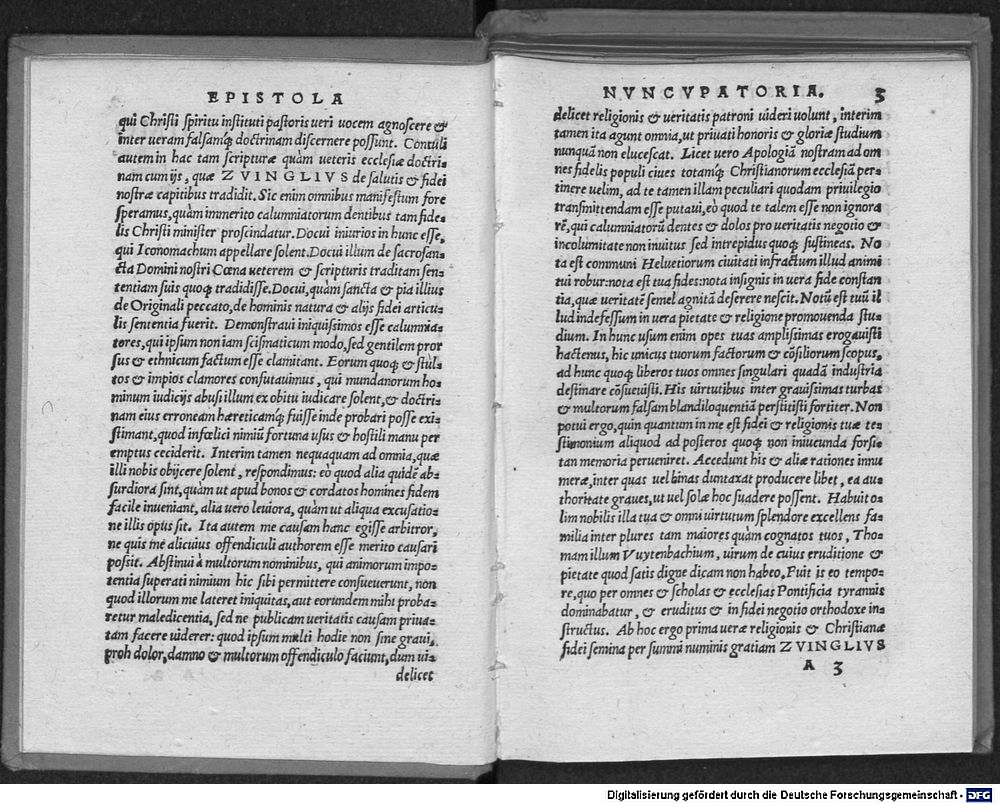 EPISTOLA
qui Christi spiritu instituti pastoris ueri uocem agnoscere &
inter ueram falsamq́; doctrinam discernere possunt. Contuli
autem in hac tam scripturæ quàm ueteris ecclesiæ doctri-
nam cum ijs, quæ ZVINGLIVS de salutis & fidei
nostræ capitibus tradidit. Sic enim omnibus manifestum fore
speramus, quàm immerito calumniatorum dentibus tam fide-
lis Christi minister proscindatur. Docui iniurios in hunc esse,
qui Iconomachum appellare solent. Docui illum de sacrosan-
cta Domini nostri Cœna ueterem & scripturis traditam sen-
tentiam suis quoq; tradidisse. Docui, quàm sancta & pia illius
de Originali peccato, de hominis natura & alijs fidei articu-
lis sententia fuerit. Demonstraui iniquissimos esse calumnia-
tores, qui ipsum non iam scismaticum modo, sed gentilem pror
sus & ethnicum factum esse clamitant. Eorum quoq; & stul-
tos & impios clamores confutauimus, qui mundanorum ho-
minum iudicijs abusi illum ex obitu iudicare solent, & doctri-
nam eius erroneam hæreticamq́; fuisse inde probari posse exi-
stimant, quod infœlici nimiũ fortuna usus & hostili manu per
emptus ceciderit. Interim tamen nequaquam ad omnia, quæ
illi nobis obijcere solent, respondimus: eò quod alia quidẽ ab-
surdiora sint, quàm ut apud bonos & cordatos homines fidem
facile inueniant, alia uero leuiora, quàm ut aliqua excusatio-
ne illis opus sit. Ita autem me causam hanc egisse arbitror,
ne quis me alicuius offendiculi authorem esse merito causari
possit. Abstinui à multorum nominibus, qui animorum impo-
tentia superati nimium hic sibi permittere consueuerunt, non
quod illorum me lateret iniquitas, aut eorundem mihi proba-
retur maledicentia, sed ne publicam ueritatis causam priua-
tam facere uiderer: quod ipsum multi hodie non sine graui,
proh dolor, damno & multorum offendiculo faciunt, dum ui-
delicet
NVNCVPATORIA. 3
delicet religionis & ueritatis patroni uideri uolunt, interim
tamen ita agunt omnia, ut priuati honoris & gloriæ studium
nunquã non elucescat. Licet uero Apologiã nostram ad om
nes fidelis populi ciues totamq́; Christianorum ecclesiã per-
tinere uelim, ad te tamen illam peculiari quodam priuilegio
transmittendam esse putaui, eò quod te talem esse non ignora
rẽ, qui calumniatorũ dentes & dolos pro ueritatis negotio &
incolumitate non inuitus sed intrepidus quoq; sustineas. No
ta est communi Heluetiorum ciuitati infractum illud animi
tui robur: nota est tua fides: nota insignis in uera fide constan
tia, quæ ueritatẽ semel agnitã deserere nescit. Notũ est tuũ il
lud indefessum in uera pietate & religione promouenda stu-
dium. In hunc usum enim opes tuas amplissimas erogauisti
hactenus, hic unicus tuorum factorum & cõsiliorum scopus,
ad hunc quoq; liberos tuos omnes singulari quadã industria
destinare cõsueuisti. His uirtutibus inter grauissimas turbas
& multorum falsam blandiloquentiã perstitisti fortiter. Non
potui ergo, quin quantum in me est fidei & religionis tuæ te-
stimonium aliquod ad posteros quoq; non iniucunda forsi-
tan memoria perueniret. Accedunt his & aliæ rationes innu
meræ, inter quas uel binas duntaxat producere libet, ea au-
thoritate graues, ut uel solæ hoc suadere possent. Habuit o-
lim nobilis illa tua & omni uirtutum splendore excellens fa-
milia inter plures tam maiores quàm cognatos tuos, Tho-
mam illum Vuytenbachium, uirum de cuius eruditione &
pietate quod satis digne dicam non habeo. Fuit is eo tempo-
re, quo per omnes & scholas & ecclesias Pontificia tyrannis
dominabatur, & eruditus & in fidei negotio orthodoxe in-
structus. Ab hoc ergo prima ueræ religionis & Christianæ
fidei semina per summi numinis gratiam ZVINGLIVS
A 3
Digitalisierung gefördert durch die Deutsche Forschungsgemeinschaft - DFG